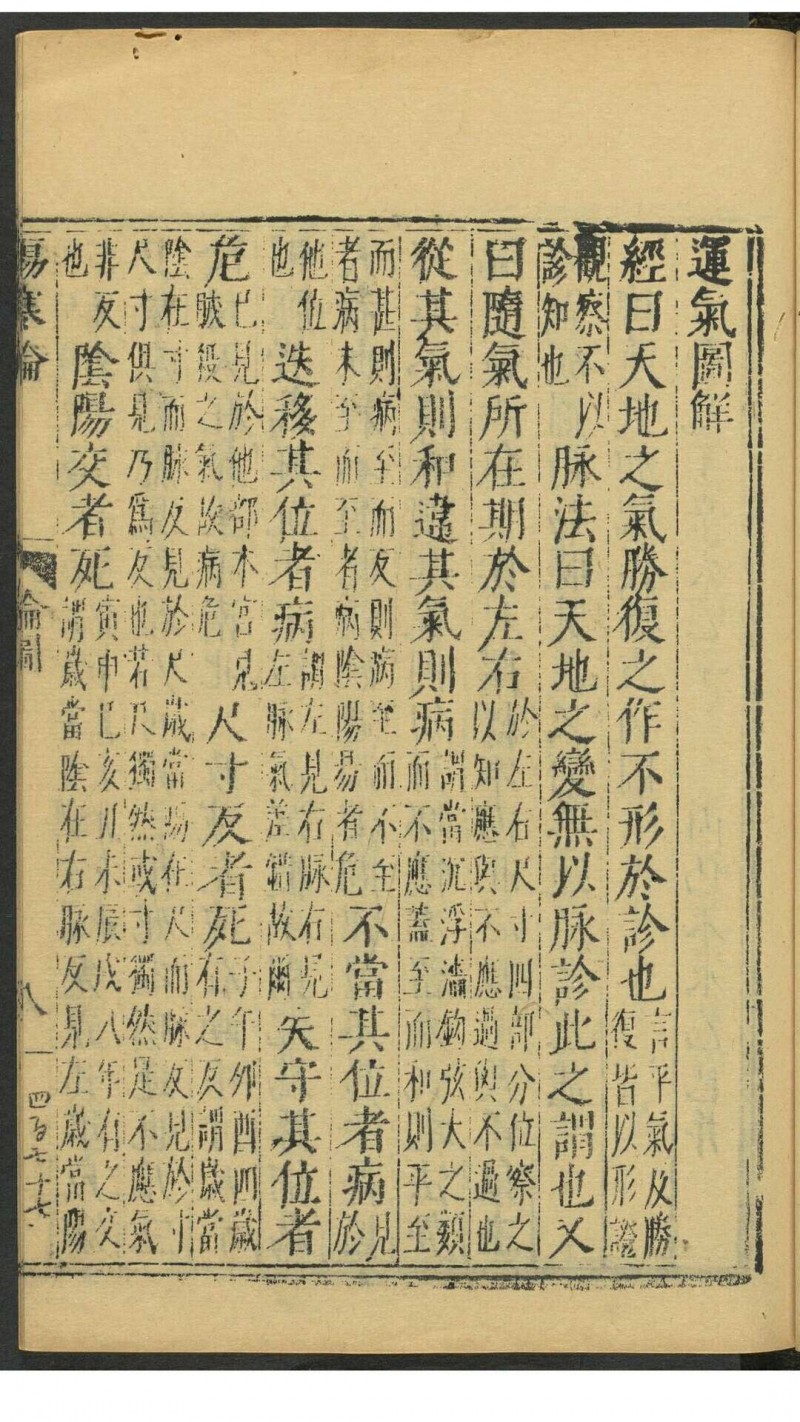 運氣圖解
經曰天地之氣勝復之作不形於診也言平氣及勝
復皆以形證
觀察不以
診知也脉法曰天地之變無以脉診此之謂也又
曰隨氣所在期於左右於左右尺寸四部分位察之
以知應與不應過與不過也
從其氣則和違其氣則病謂當沉浮濇鈎弦大之類
而不應蓋至而和則平至
而甚則病至而反則病至而不至
者病未至而至者病陰陽易者危不當其位者病見
於
他位
也迭移其位者病謂左見右脉右見
左脉氣差錯故爾失守其位者
危已見於他部本宮見
賊殺之氣故病危尺寸反者死子午卯酉四歲
有之反謂歲當
陰在寸而脉反見於尺歲當陽在尺而脉反見於寸
尺寸俱見乃爲反也若尺獨然或寸獨然是不應氣
非反
也陰陽交者死寅申巳亥丑未辰戌八年有之交
謂歲當陰在右脉反見左歲當陽
傷寒論 論圖 八 四百七十七